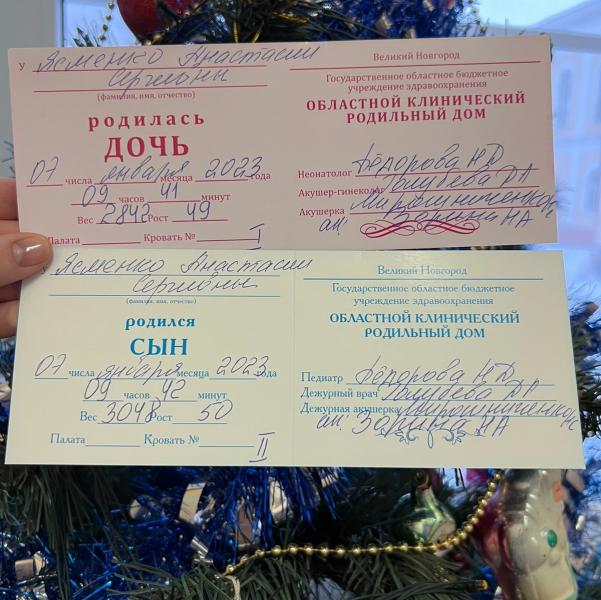 У Ясменко Анастасии
Сергеевны
(фамилия, имя, отчество)
родилась
ДОЧЬ
07 числа января месяца 2023 года
09 часов 41 минут
Вес 2842 Рост 49
Палата Кровать № I
Великий Новгород
Государственное областное бюджетное
учреждение здравоохранения
ОБЛАСТНОЙ КЛИНИЧЕСКИЙ
РОДИЛЬНЫЙ ДОМ
Неонатолог Фёдорова НД
Акушер-гинеколог Голубева РА
Акушерка Мирошниченко
ан. Зорина НА
Ясменко Анастасии
Сергеевны
(фамилия, имя, отчество)
родился
СЫН
07 числа января месяца 2023 года
09 часов 42 минут
Вес 3048 Рост 50
Палата Кровать № II
Великий Новгород
Государственное областное бюджетное
учреждение здравоохранения
ОБЛАСТНОЙ КЛИНИЧЕСКИЙ
РОДИЛЬНЫЙ ДОМ
Педиатр Фёдорова НД
Дежурный врач Голубева РА
Дежурная акушерка Мирошниченко
ан. Зорина НА